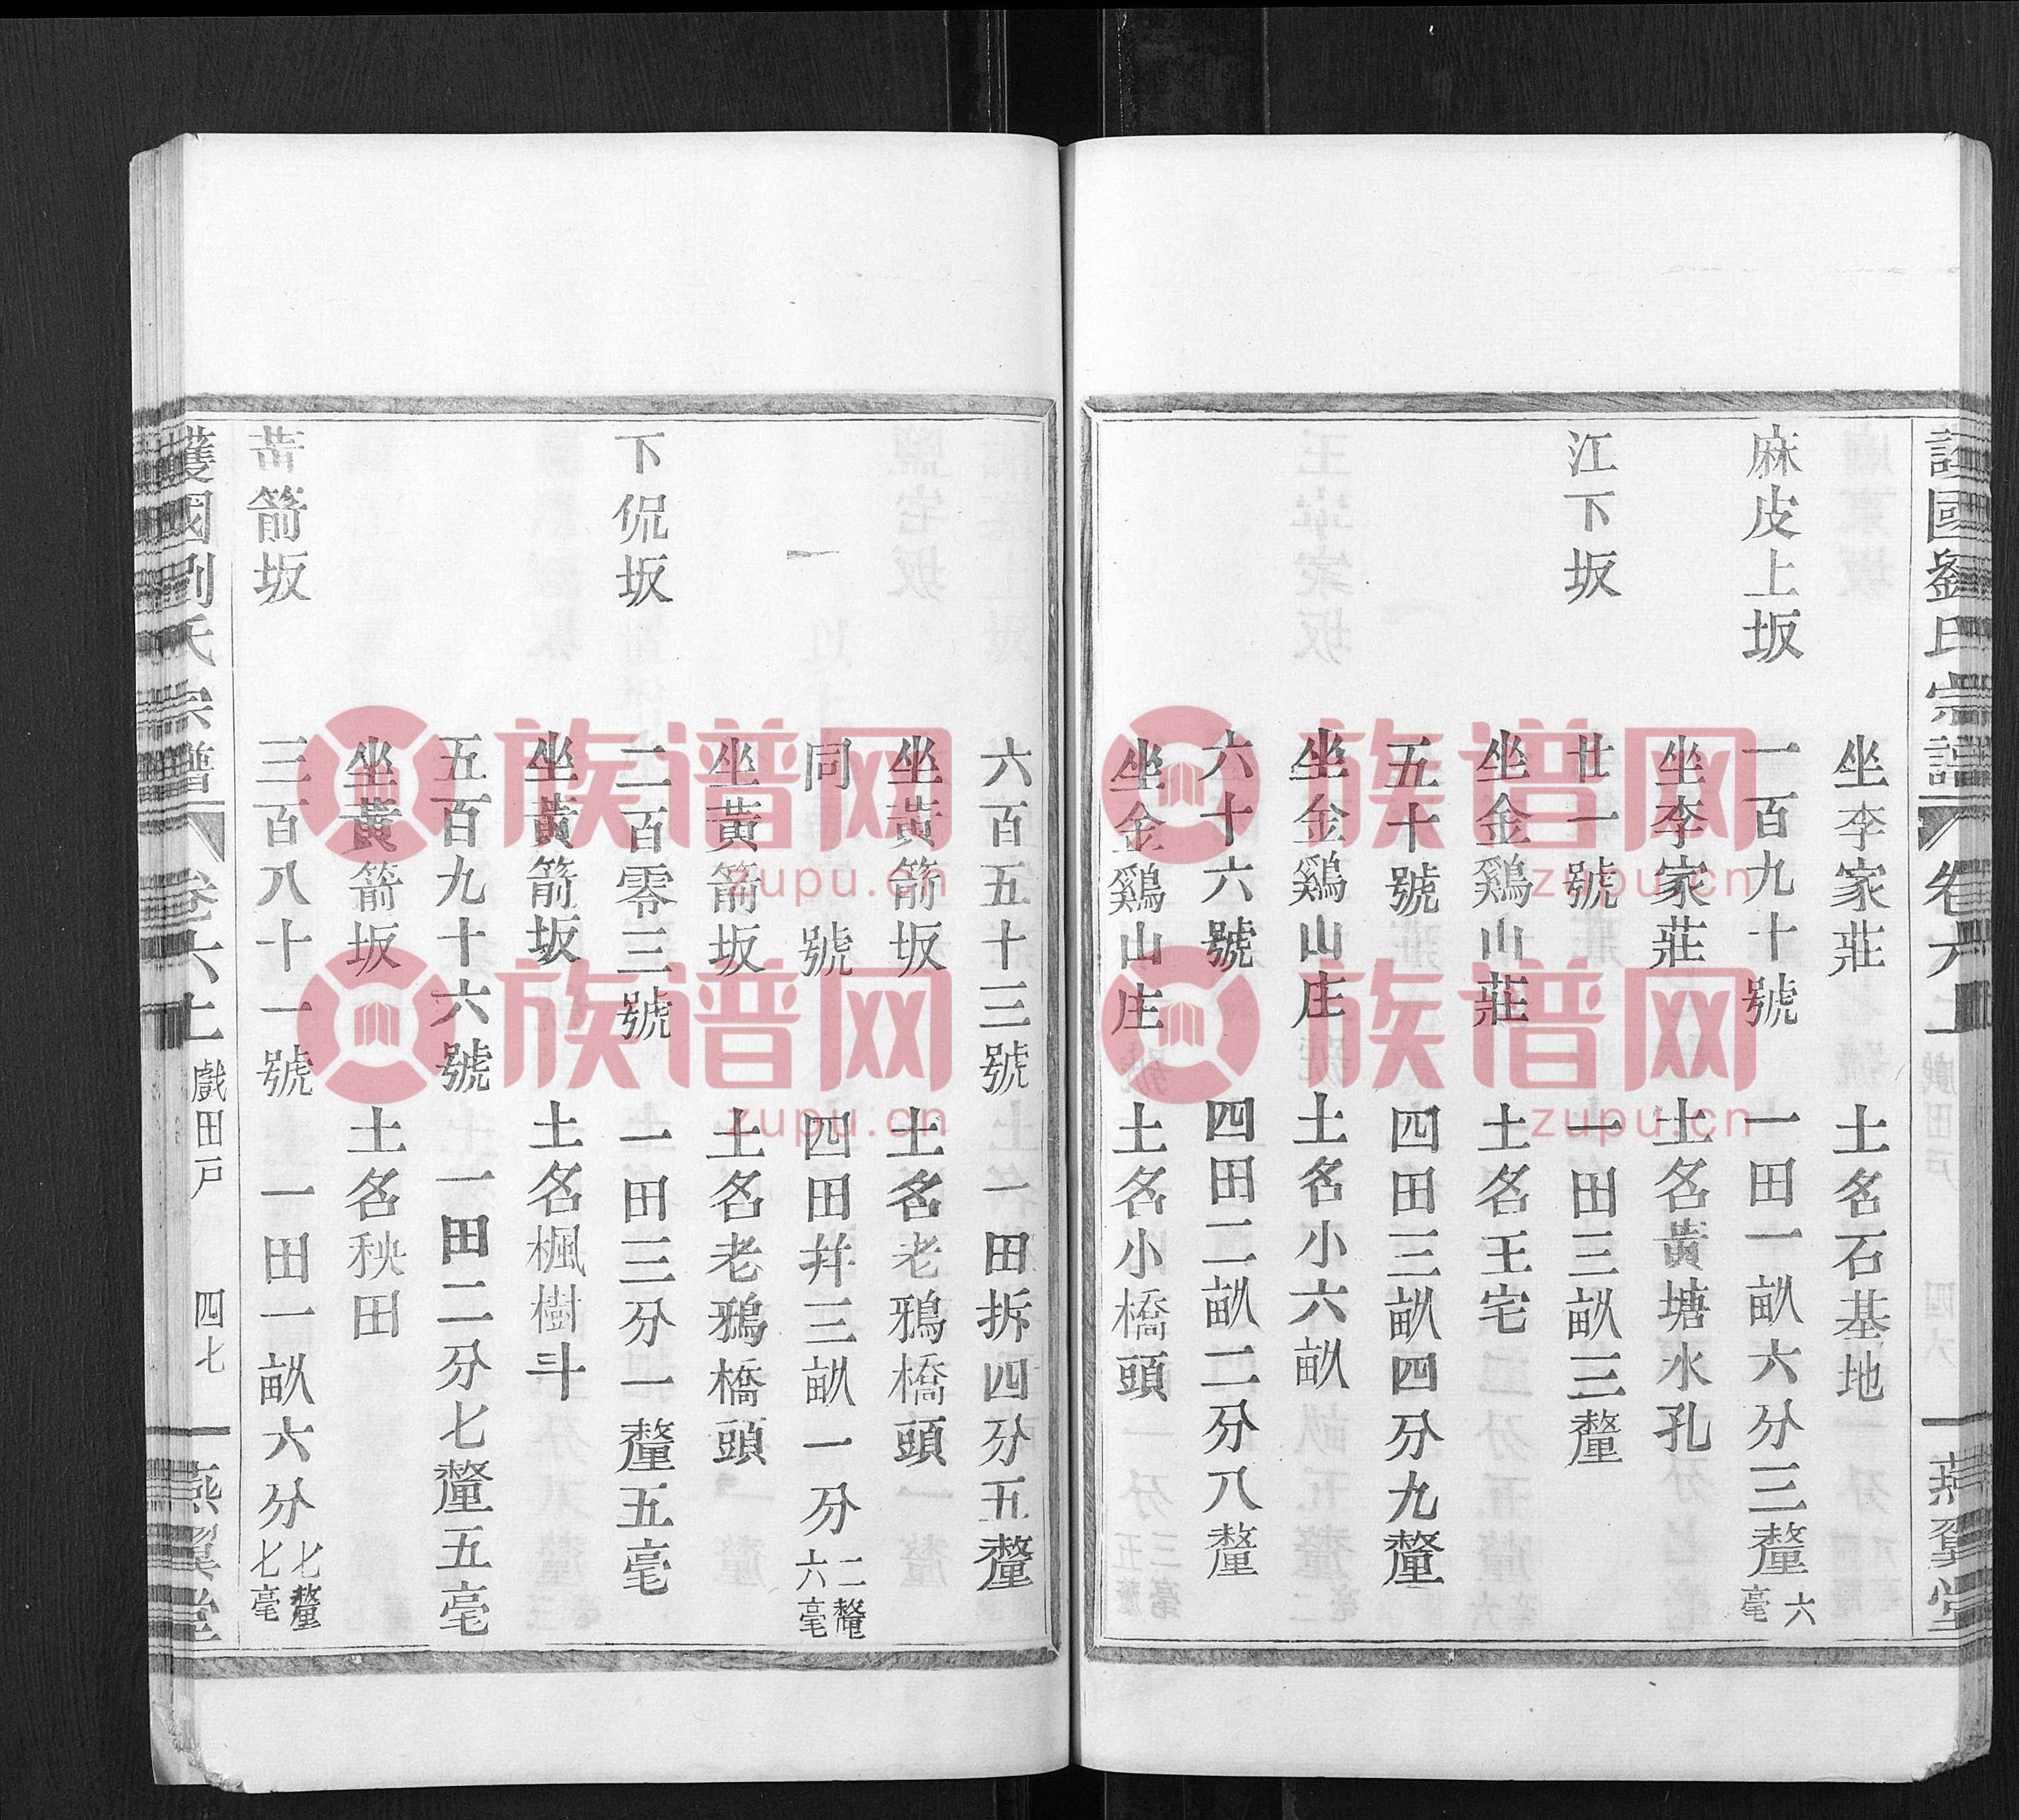 護國劉氏宗譜 卷六上 戲田戶 四六 燕翼堂
坐李家莊 土名石基地
麻皮上坂 一百九十號 一田一畝六分三釐六毫
坐李家莊 土名黃塘水孔
江下坂 廿一號 一田三畝三釐
坐金鷄山莊 土名王宅
五十號 四田三畝四分九釐
坐金鷄山庄 土名小六畝
六十六號 四田二畝二分八釐
坐金鷄山庄 土名小橋頭
六百五十三號 一田拆四分五釐
坐黃箭坂 土名老鴉橋頭
同號 四田幷三畝一分二釐六毫
坐黃箭坂 土名老鴉橋頭
下侃坂 二百零三號 一田三分一釐五毫
坐黃箭坂 土名楓樹斗
五百九十六號 一田二分七釐五毫
坐黃箭坂 土名秧田
箭坂 三百八十一號 一田一畝六分七釐七毫
護國劉氏宗譜 卷六上 戲田戶 四七 燕翼堂
族谱网
zupu.cn
族谱网
zupu.cn
族谱网
zupu.cn
族谱网
zupu.cn